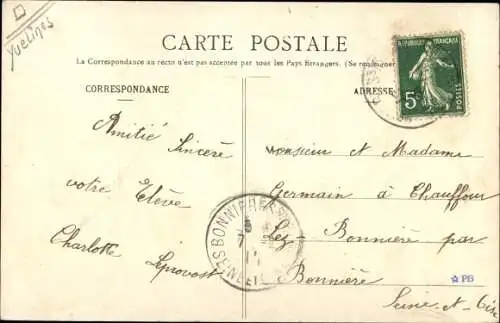 Yvelines
CARTE POSTALE
La Correspondance au recto n'est pas acceptée par tous les Pays Étrangers. (Se renseigner
CORRESPONDANCE
ADRESSE
REPUBLIQUE FRANÇAISE
5c
POSTES
Amitié Sincère
votre Elève
Charlotte Leprovost
Monsieur et Madame
Germain à Chauffour
Lez-Bonnière par
Bonnière
Seine-et-Oise
BONNIERES-S
SEINE ET
PB